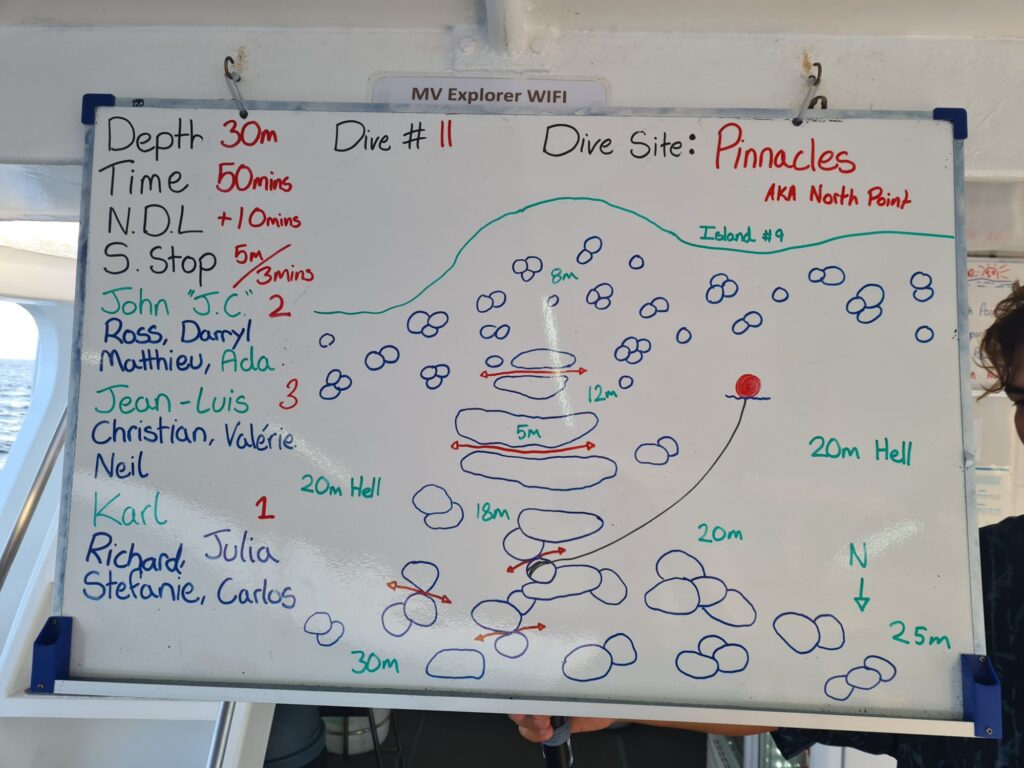 MV Explorer WIFI
Depth 30m
Time 50mins
N.D.L +10mins
S. Stop 5m/3mins
John "J.C." 2
Ross, Darryl
Matthieu, Ada
Jean-Luis 3
Christian, Valérie
Neil
Karl 1
Richard, Julia
Stefanie, Carlos
Dive # 11
Dive Site: Pinnacles
AKA North Point
Island #9
8m
12m
5m
20m Hell
20m Hell
18m
20m
N
25m
30m